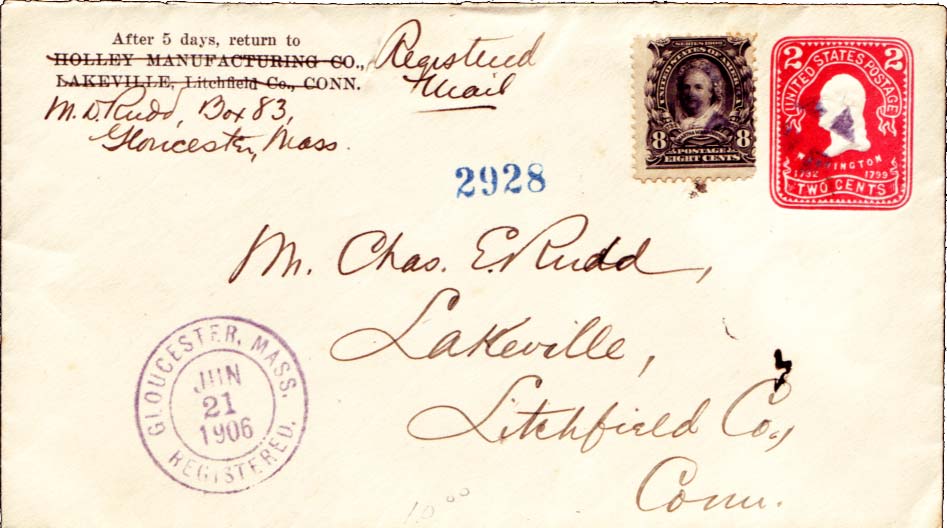 After 5 days, return to
HOLLEY MANUFACTURING CO.,
LAKEVILLE, Litchfield Co., CONN.
Registered
Mail
M. D. Rudd, Box 83,
Gloucester, Mass.
SERIES 1902
UNITED STATES OF AMERICA
8 8
POSTAGE
EIGHT CENTS
2 2
UNITED STATES POSTAGE
WASHINGTON
1732 1799
TWO CENTS
2928
Mr. Chas. E. Rudd,
Lakeville,
Litchfield Co.,
Conn.
GLOUCESTER, MASS.
JUN
21
1906
REGISTERED.
10 00